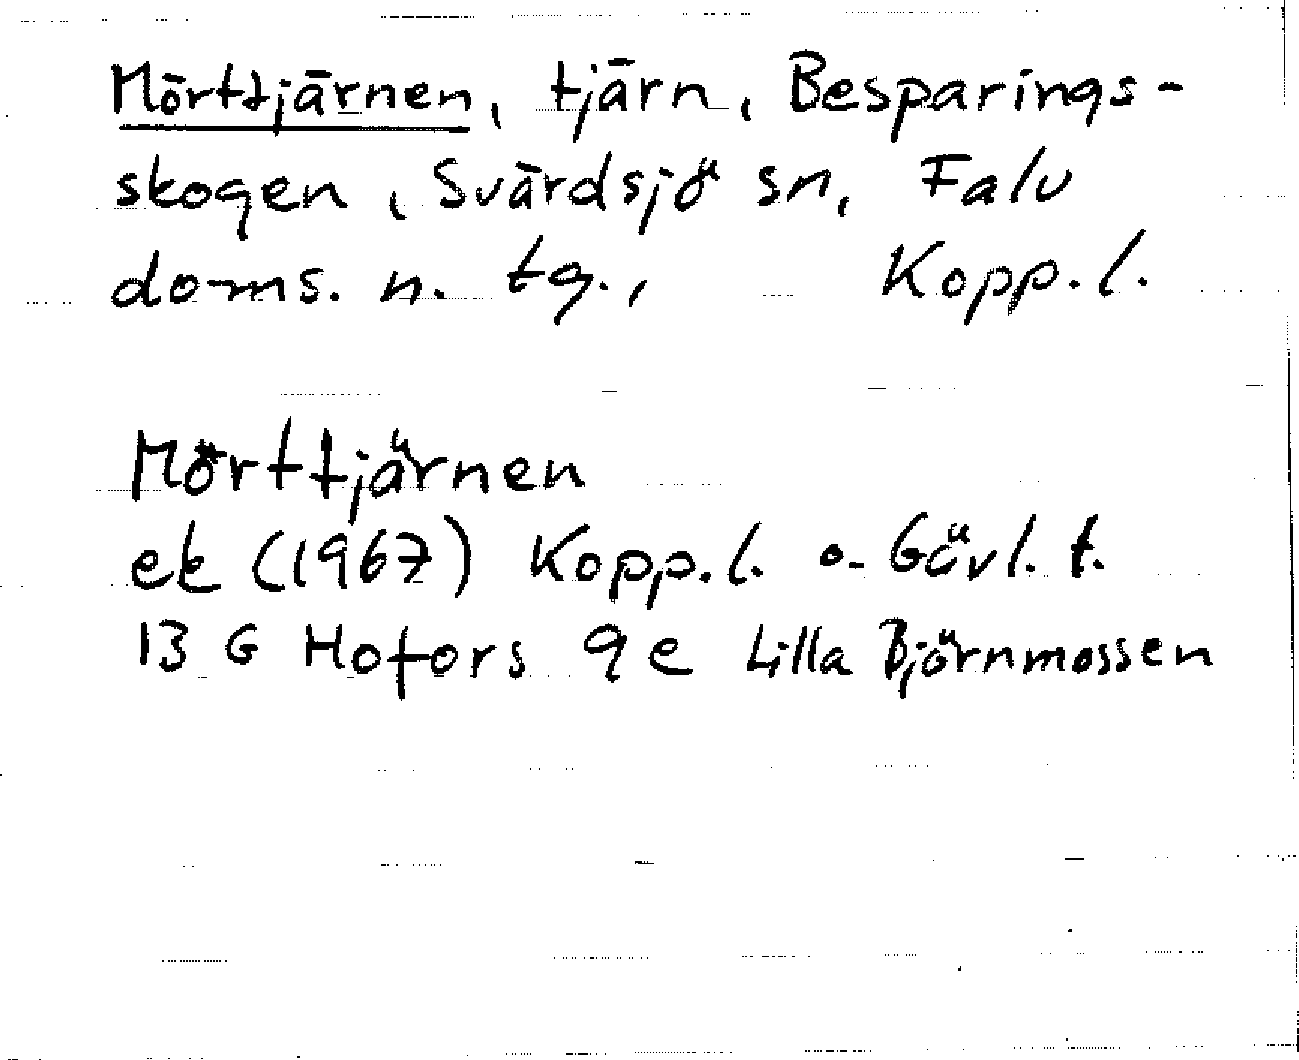 Mörttjärnen, tjärn, Besparings-
skogen, Svärdsjö sn, Falu
doms. n. tg., Kopp. l.
Mörttjärnen
ek (1967) Kopp. l. o. Gävl. t.
13 G Hofors 9 e Lilla Björnmossen